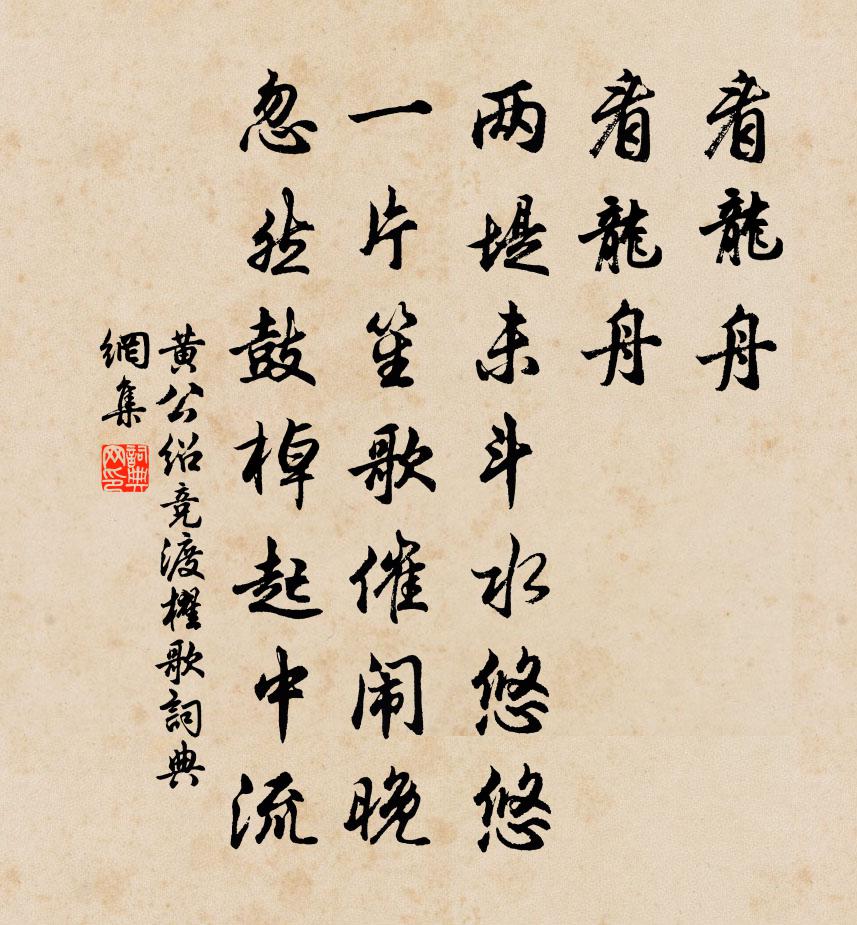 看龍舟
看龍舟
两堤未斗水悠悠
一片笙歌催闹晚
忽然鼓棹起中流
黄公绍竞渡櫂歌詞典
網集
詞典
网印